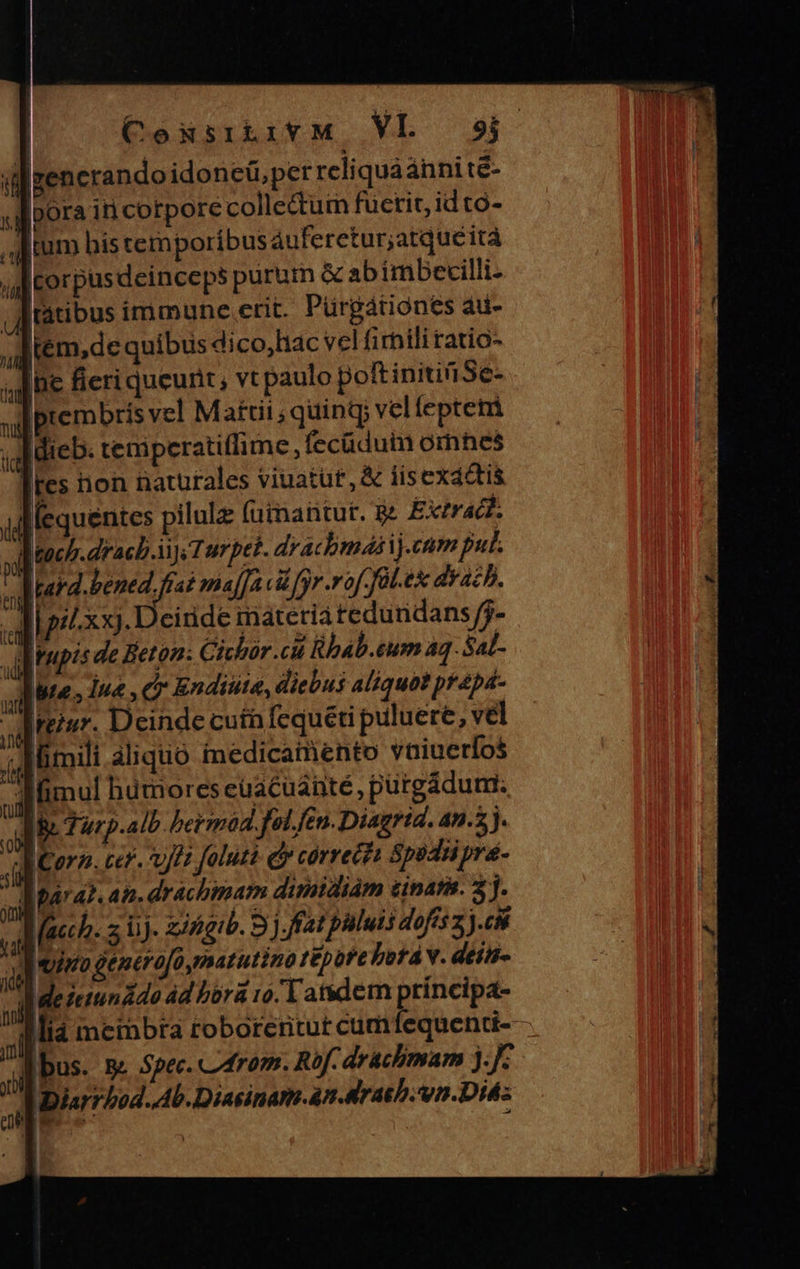 CONSILIVM VI. 95
generando idoneū, per reliqua anni tē-
pora in corpore collectum fuerit, id to-
tum his temporibus auferetur; atque ita
corpus deinceps purum & ab imbecilli-
tatibus immune erit. Purgationes au-
tem, de quibus dico, hac vel simili ratio-
ne fieri queunt; vt paulo post initiū Se-
ptembris vel Martii, quinq; vel septem
dieb. temperatissime, secūdum omnes
res non naturales viuatur, & iis exactis
sequentes pilulæ sumantur. ℞ Extract.
troch. drach. iij. Turpet. drachmas ij. cum pul.
card. bened. fiat massa cū syr. ros. sol. ex drach.
j pil. xxj. Deinde materia redundans sy-
rupis de Beton: Cichor. cū Rhab. eum aq. Sal-
uiæ, Iuæ, & Endiuiæ, diebus aliquot præpa-
retur. Deinde cum sequēti puluere, vel
simili aliquo medicamento vniuersos
simul humores euacuante, purgādum.
℞ Turp. alb. hermod. fol. sen. Diagrid. an. ʒ j.
Corn. cer. vsti soluti & correcti Spodii præ-
parat. an. drachmam dimidiam cinam. ʒ j.
sacch. ʒ iij. zingib. ℈ j. fiat puluis dosis ʒ j. cū
vino generoso, matutino tēpore hora v. dein-
de ieiunādo ad horā 10. Tandem principa-
lia membra roborentur cum sequenti-
bus. ℞ Spec. Arom. Ros. drachmam j. s.
Diarrhod. Ab. Diacinam. an. drach. vn. Dia-